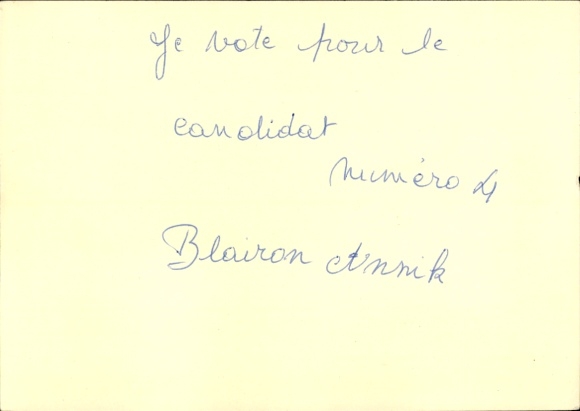 Je vote pour le
candidat
numéro 4
Blairon Annik